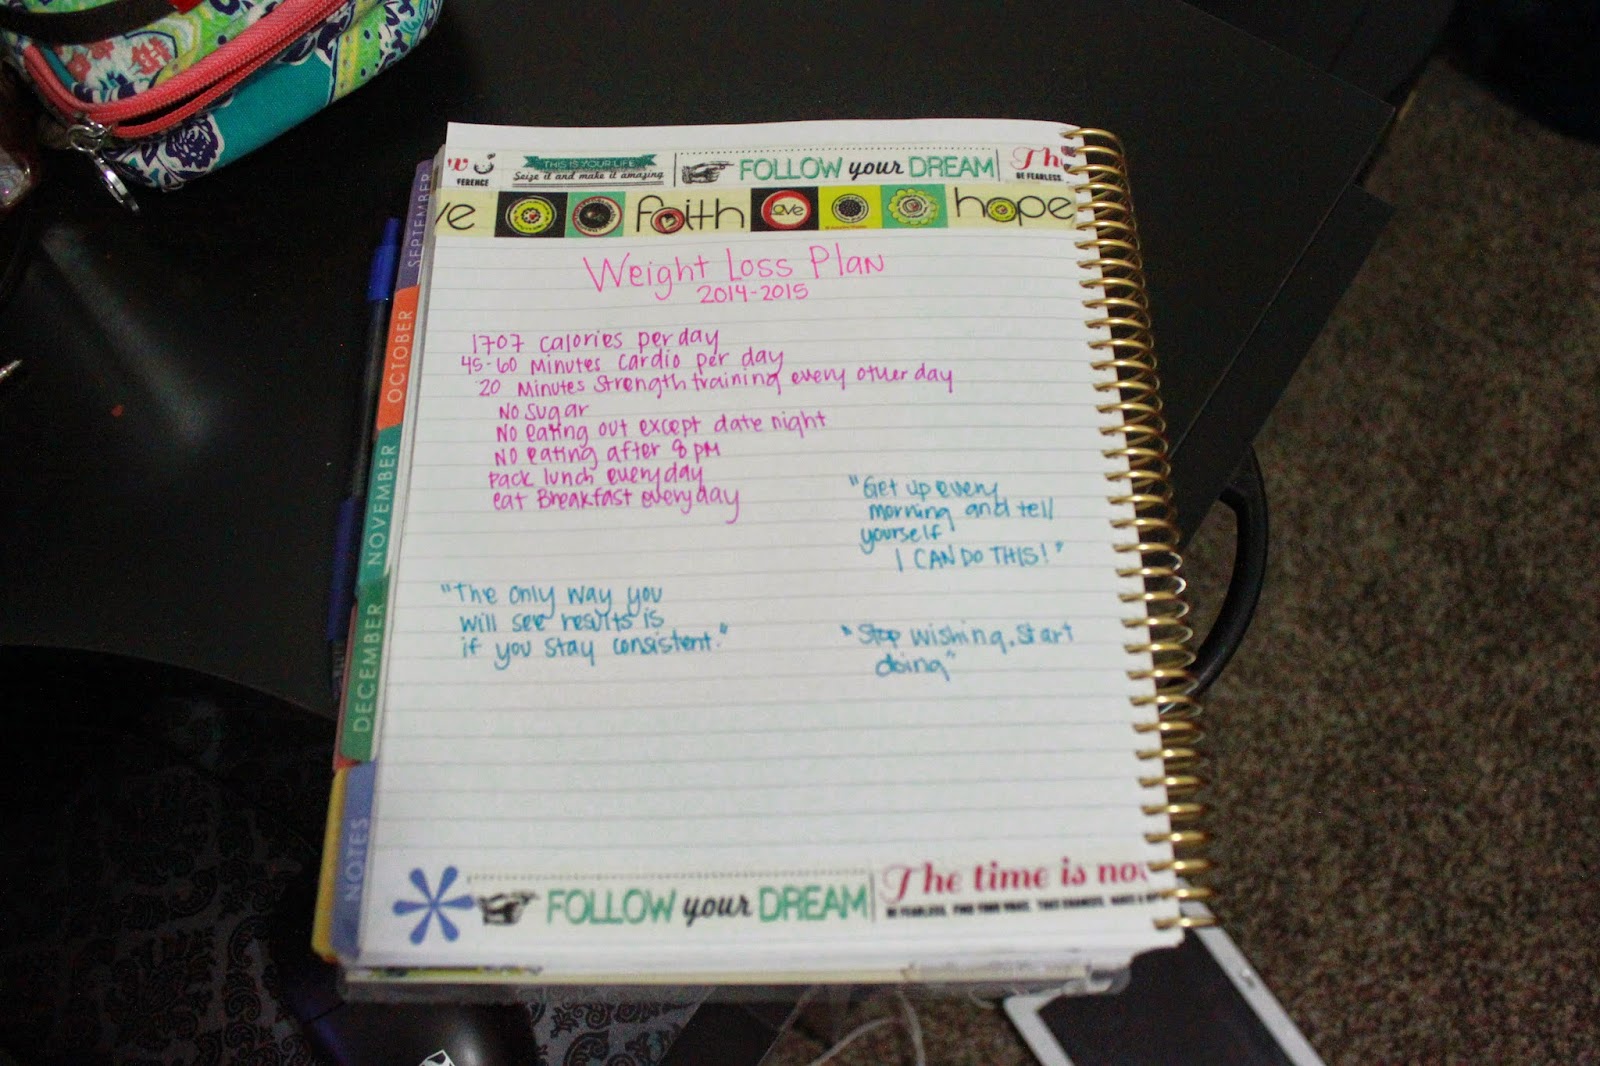 FERENCE
THIS IS YOUR LIFE
Seize it and make it amazing
FOLLOW your DREAM
BE FEARLESS.
faith love hope
Weight Loss Plan
2014-2015
1707 calories per day
45-60 Minutes cardio per day
20 Minutes strength training every other day
No sugar
No eating out except date night
No eating after 8 pm
pack lunch everyday
eat Breakfast everyday
"Get up every
morning and tell
yourself
I CAN DO THIS!"
"The only way you
will see results is
if you stay consistent."
"Stop wishing, start
doing"
FOLLOW your DREAM
The time is now
BE FEARLESS.
SEPTEMBER
OCTOBER
NOVEMBER
DECEMBER
NOTES